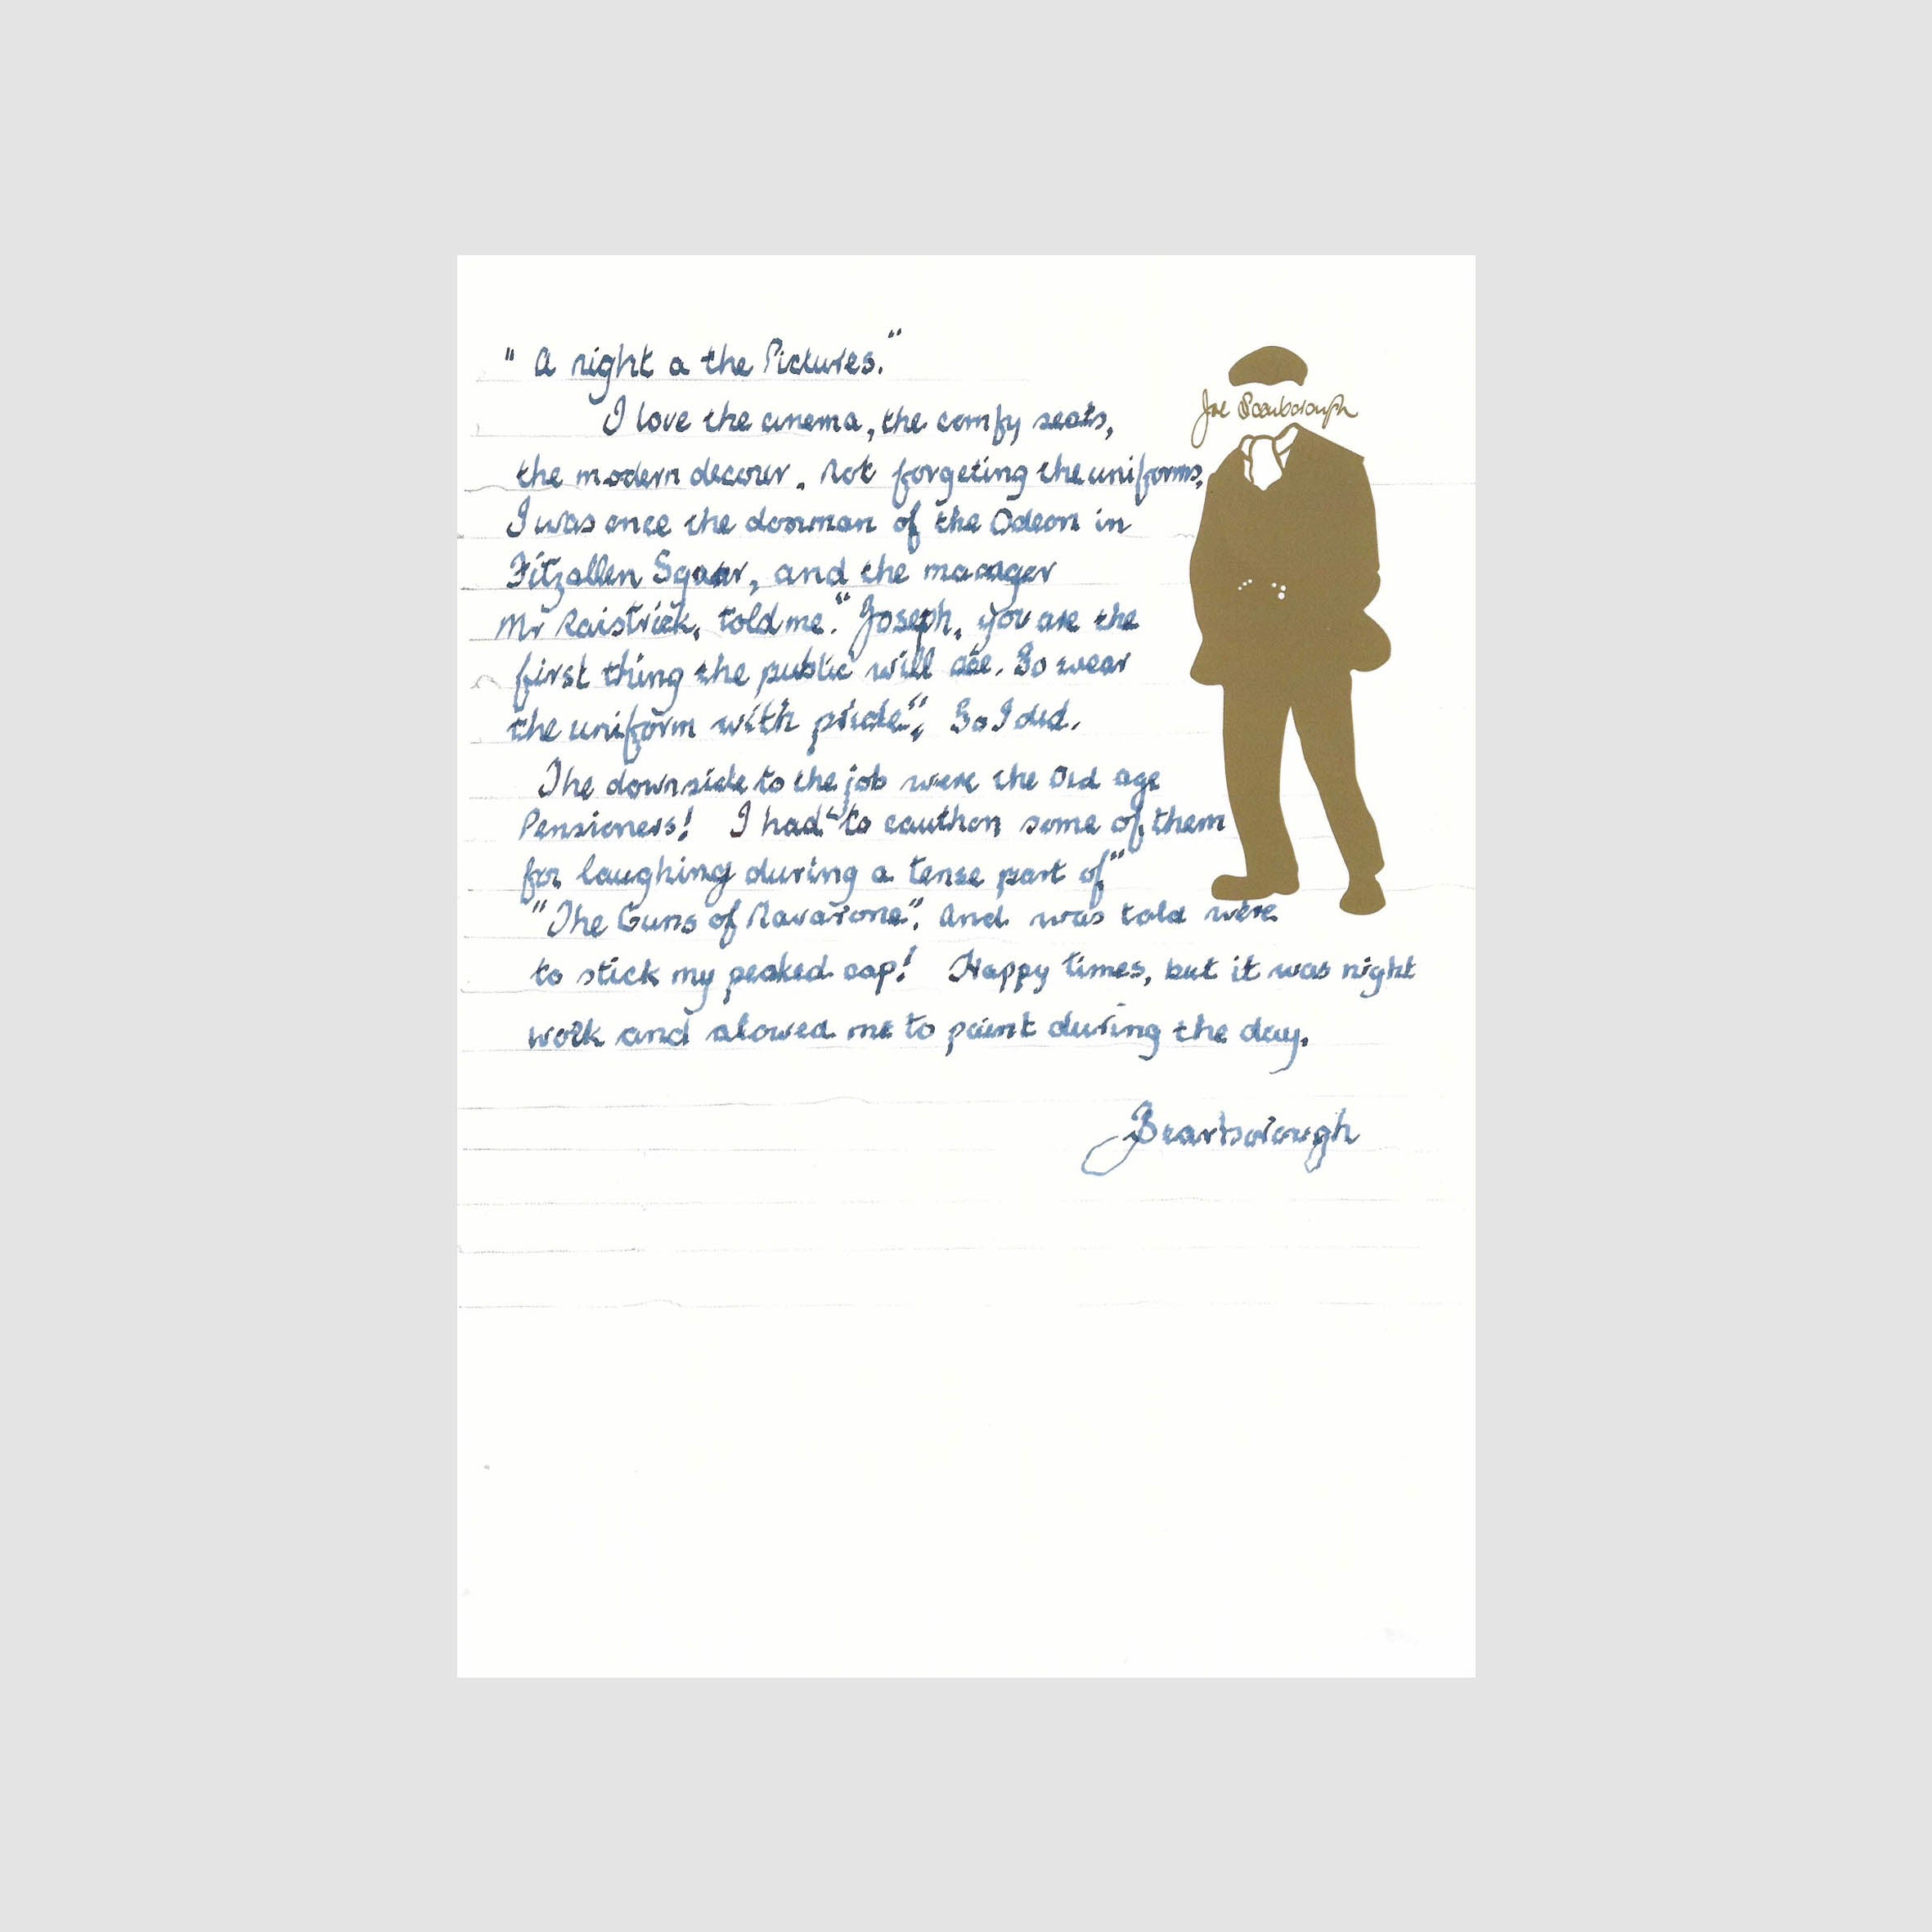 " A night a the Pictures."
Joe Scarborough
I love the cinema, the comfy seats,
the modern decour. Not forgeting the uniforms,
I was once the dorman of the Odeon in
Fitzallen Sqauer, and the manager
Mr Raistrick, told me." Joseph, you are the
first thing the public will see. So wear
the uniform with pride", So I did.
The downside to the job were the Old age
Pensioners! I had to cauthon some of them
for laughing during a tense part of"
"The Guns of Navarone". And was told were
to stick my peaked cap! Happy times, but it was night
work and alowed me to paint during the day.
JScarborough